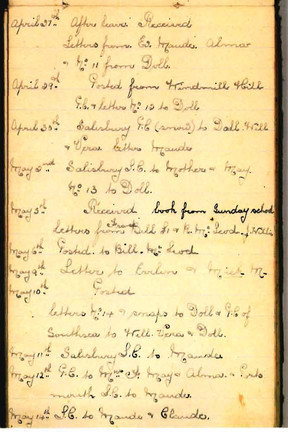 April 27th After tour Received
Letters from Er. Maude Alma
& No 11 from Doll.
April 29th Posted from Windmill Hill
P.C. & letter No 12 to Doll
April 30th Salisbury P.C. (small) to Doll Nell
& Vera letters Maude
May 2nd Salisbury P.C. to Mother & May
No 13 to Doll.
May 5th Received book from Sunday school
Letters from Doll &
May 6th Posted to Bill McLeod
May 9th Letter to Evelyn & Miss M
May 10th Posted
letters No 14 & snaps to Doll & P.C. of
Southsea to Nell. Vera & Doll.
May 11th Salisbury P.C. to Maude
May 12th P.C. to Mrs A. May & Alma & Ports
mouth P.C. to Maude.
May 14th P.C. to Maude & Claude.